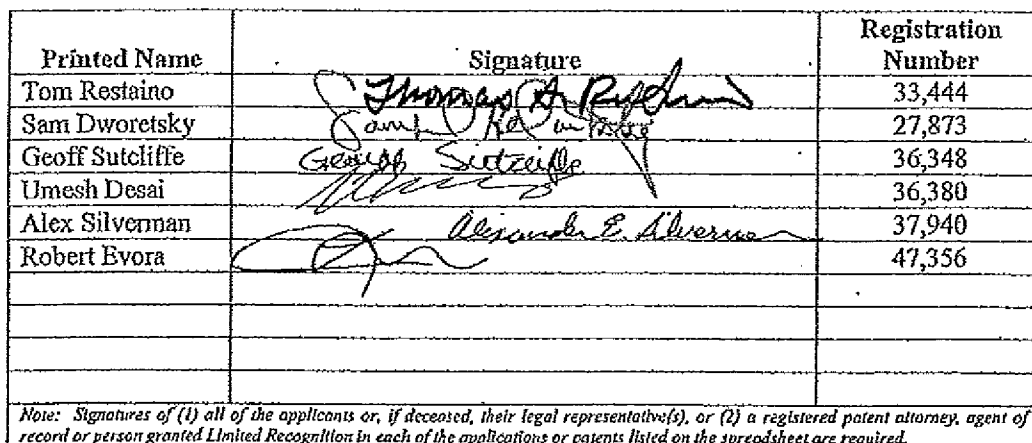 Printed Name Signature Registration Number
Tom Restaino Thomas A. Restaino 33,444
Sam Dworetsky 27,873
Geoff Sutcliffe Geoffrey Sutcliffe 36,348
Umesh Desai 36,380
Alex Silverman Alexander E. Silverman 37,940
Robert Evora 47,356
Note: Signatures of (1) all of the applicants or, if deceased, their legal representative(s), or (2) a registered patent attorney, agent of
record or person granted Limited Recognition in each of the applications or patents listed on the spreadsheet are required.